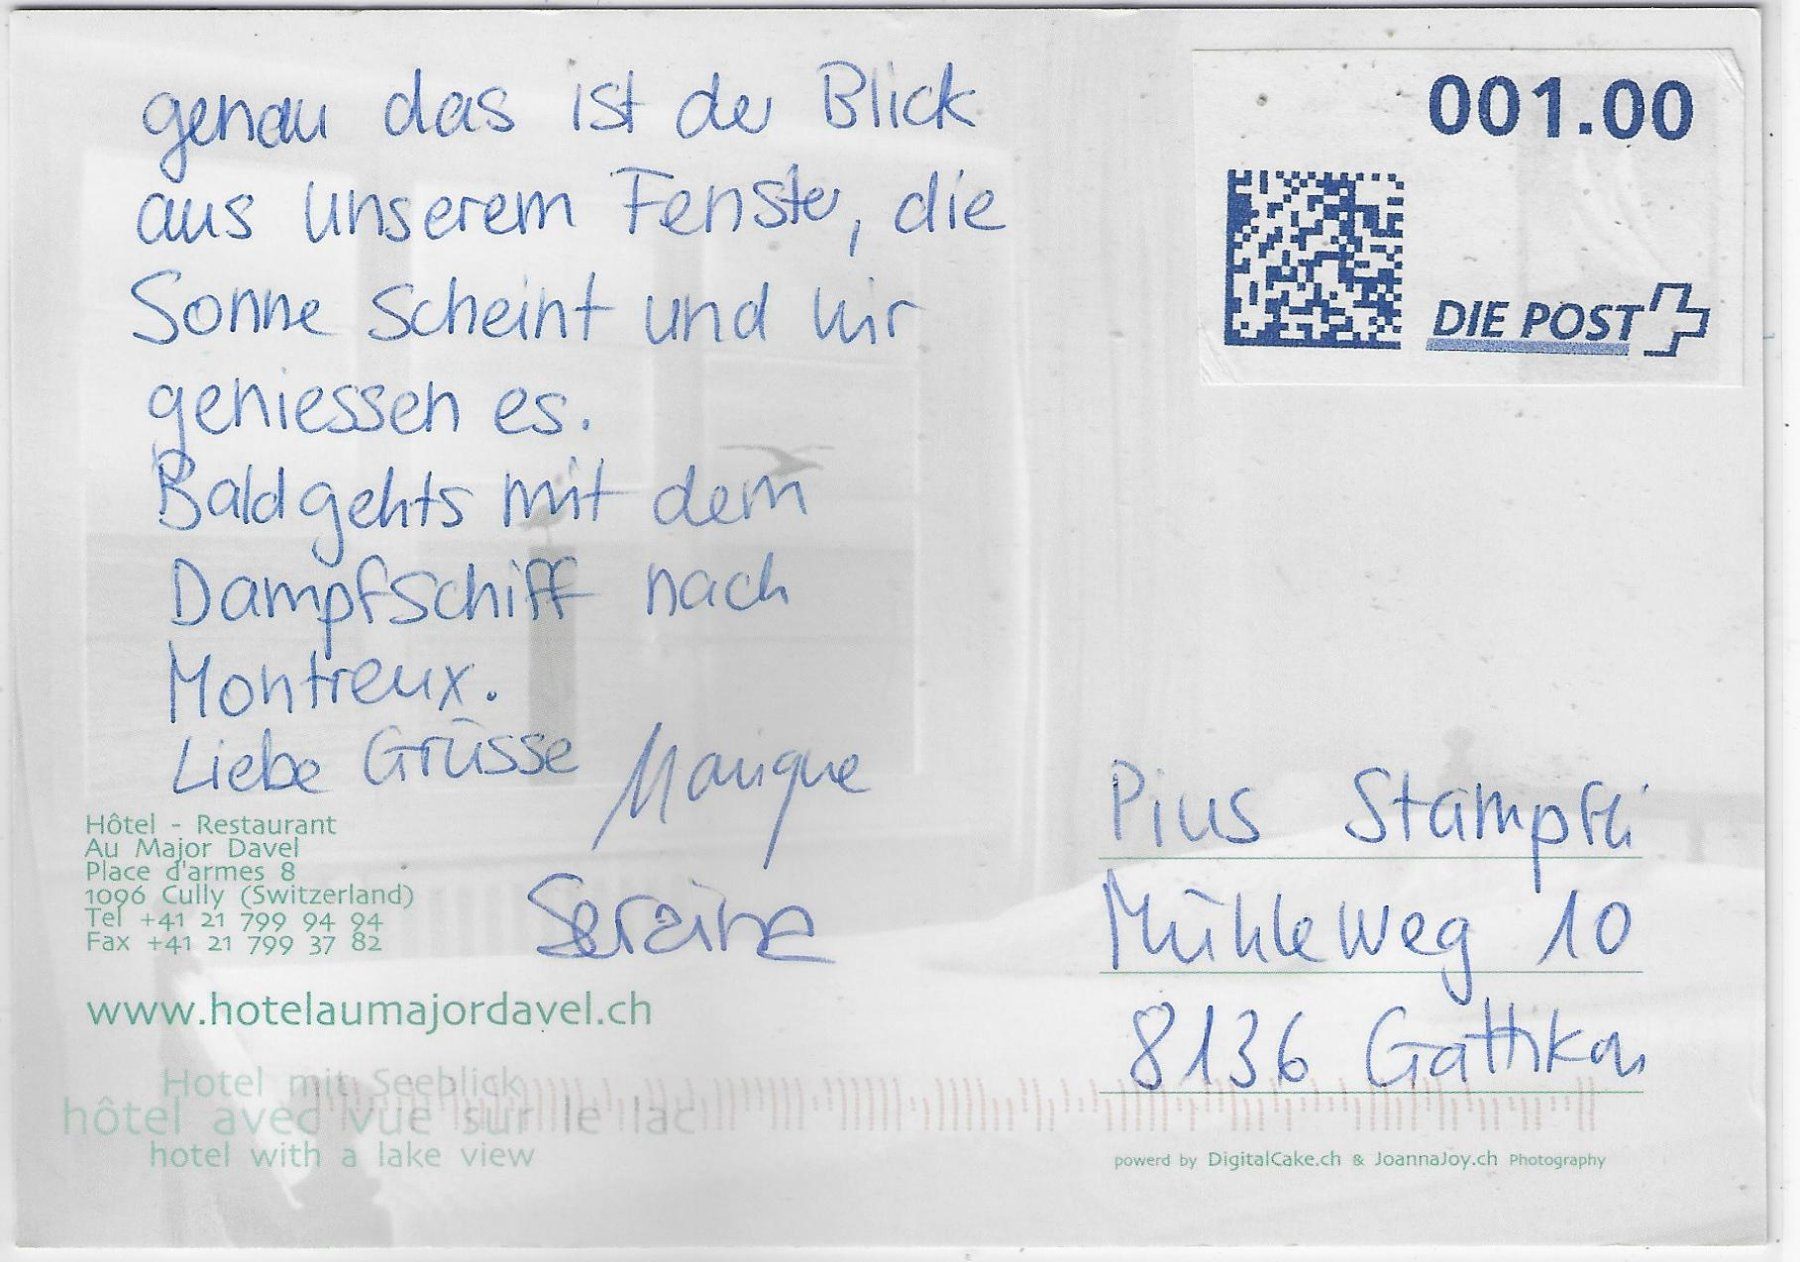 genau das ist der Blick
aus unserem Fenster, die
Sonne scheint und wir
geniessen es.
Bald gehts mit dem
Dampfschiff nach
Montreux.
Liebe Grüsse
Seraina
Hôtel - Restaurant
Au Major Davel
Place d'armes 8
1096 Cully (Switzerland)
Tel +41 21 799 94 94
Fax +41 21 799 37 82
www.hotelaumajordavel.ch
Hotel mit Seeblick
hôtel avec vue sur le lac
hotel with a lake view
001.00
DIE POST
Pius Stampfli
Mühleweg 10
8136 Gattikon
powerd by DigitalCake.ch & JoannaJoy.ch Photography